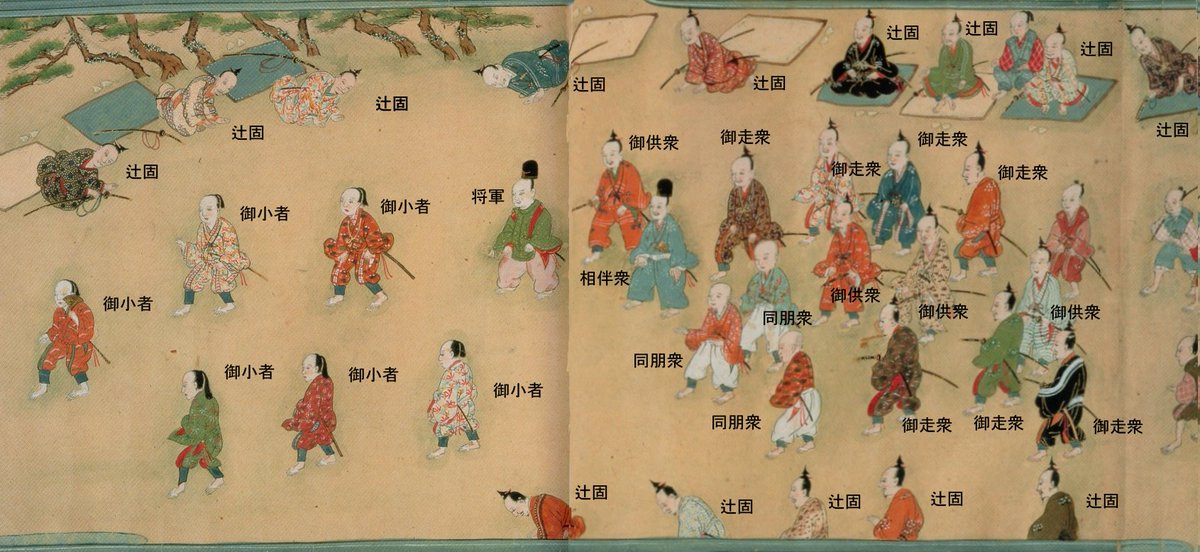 辻固
辻固
辻固
辻固
辻固
辻固
辻固
辻固
辻固
御供衆
御走衆
御走衆
御走衆
御走衆
将軍
御小者
御小者
御小者
相伴衆
御供衆
御供衆
御供衆
同朋衆
同朋衆
同朋衆
御小者
御小者
御小者
御走衆
御走衆
御走衆
辻固
辻固
辻固
辻固
辻固